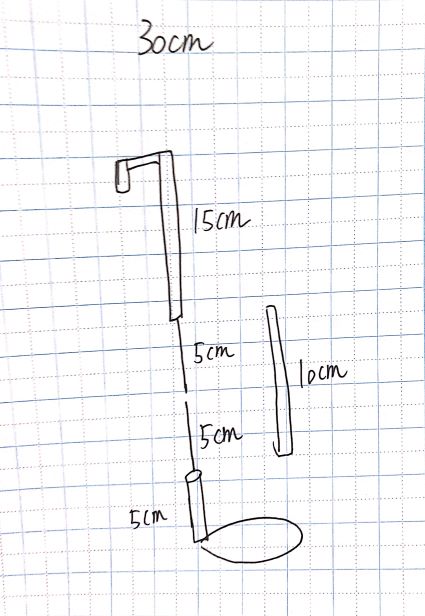 30cm
15cm
5cm
10cm
5cm
5cm